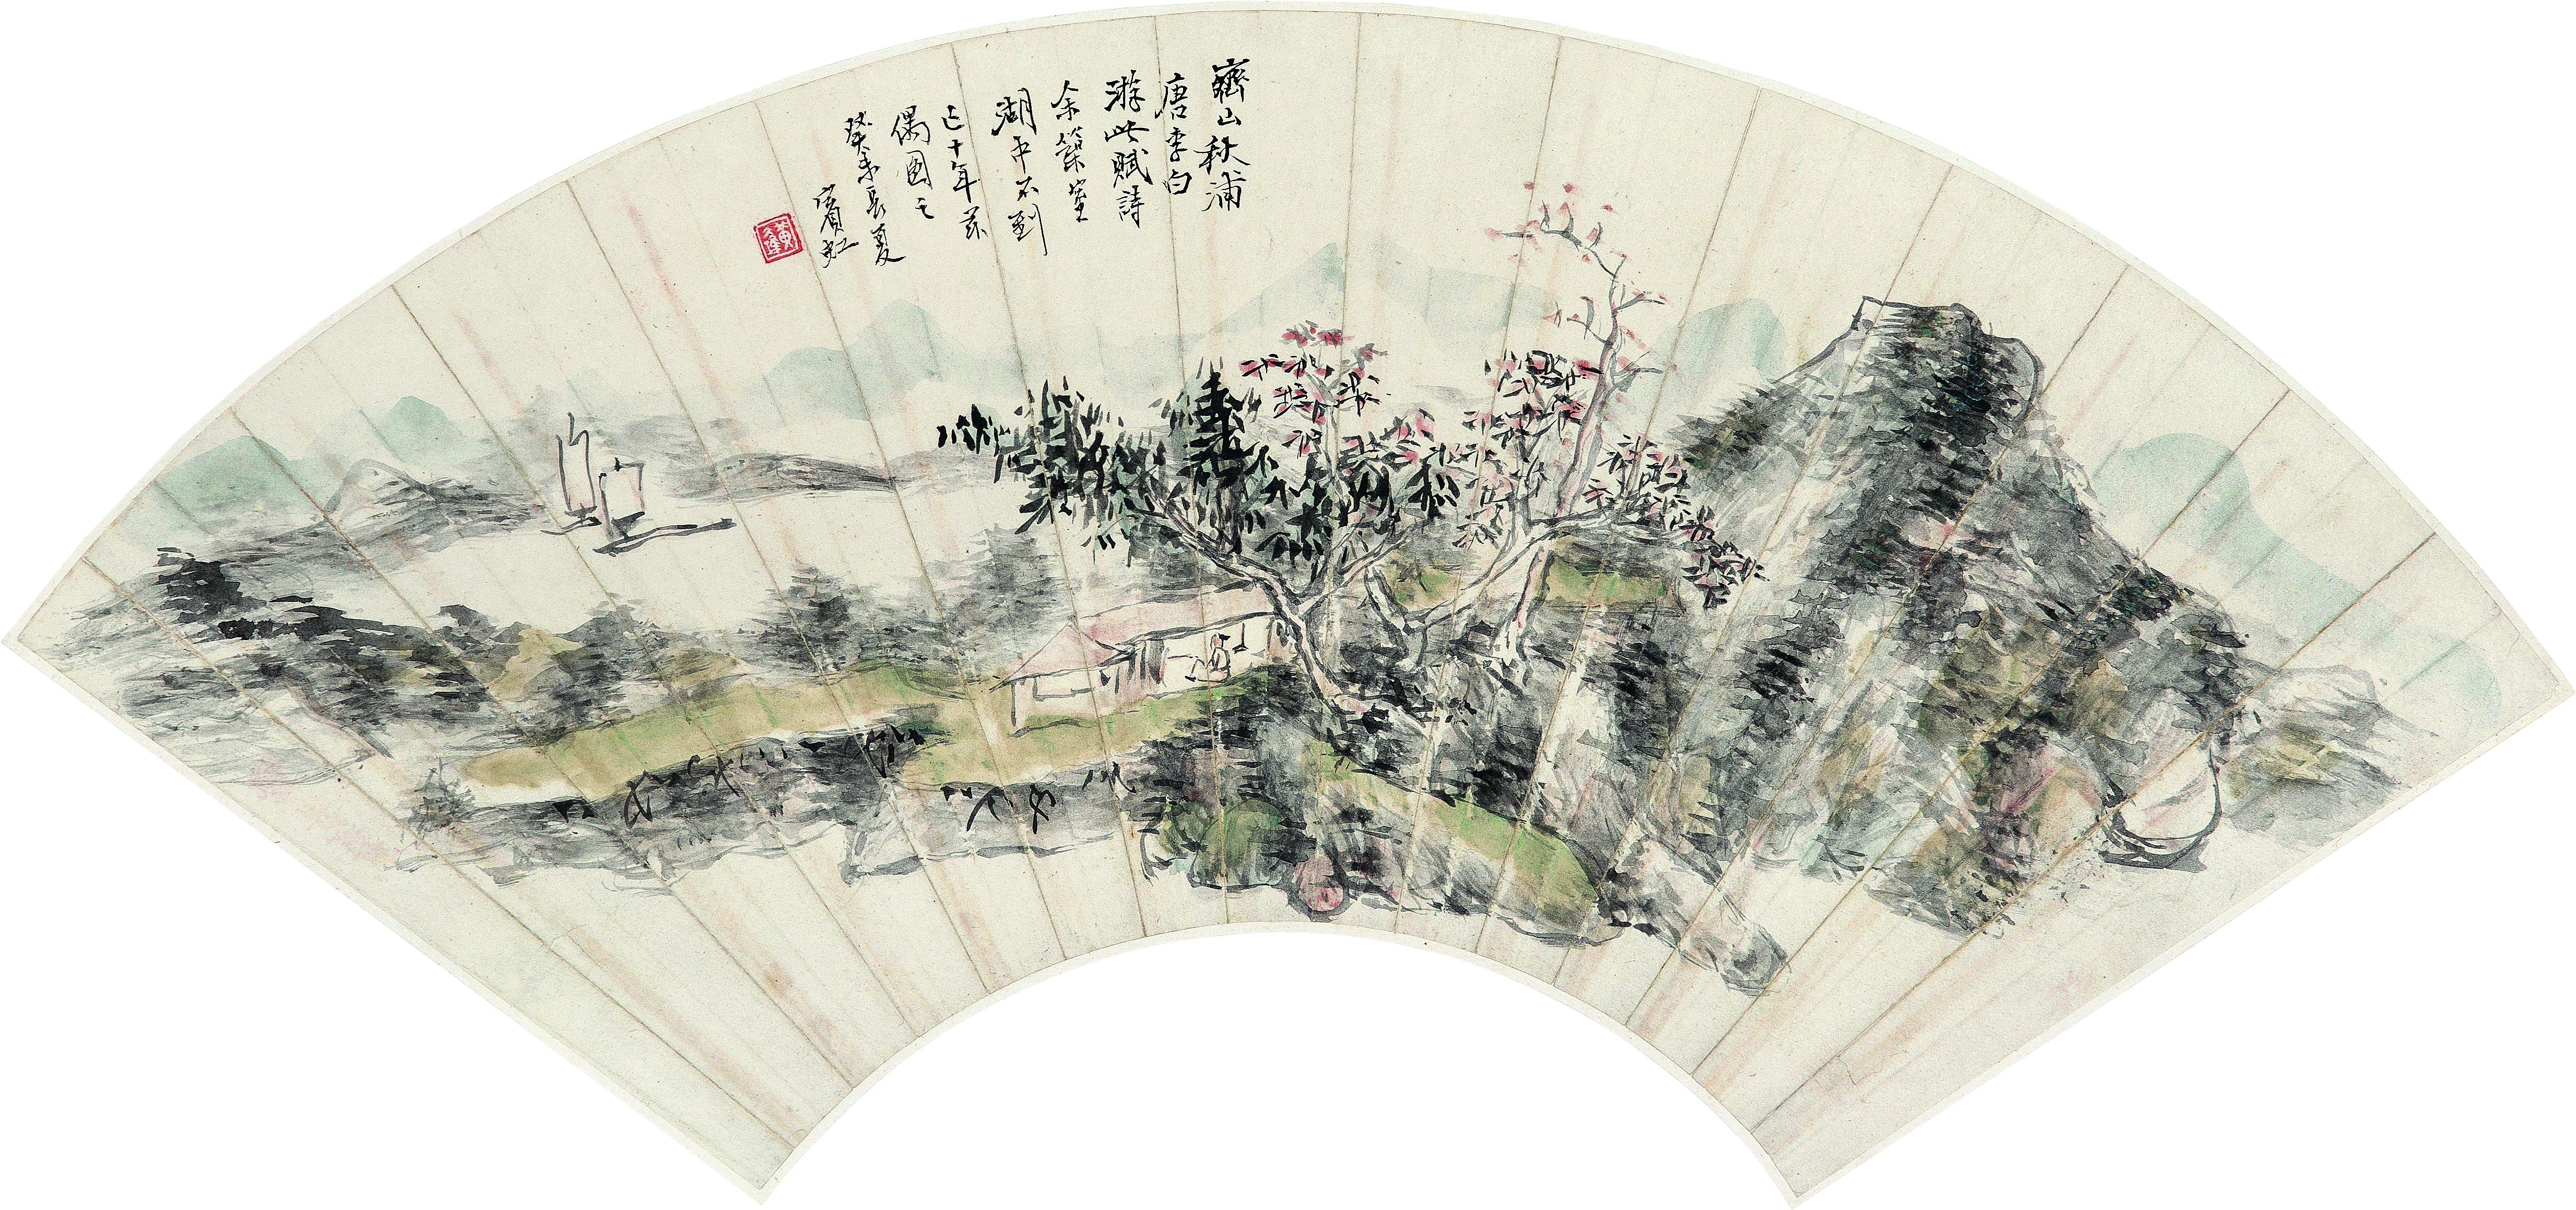 齊山秋浦
唐李白
游此賦詩
余築室
湖中不到
已十年茲
偶圖之
癸未長夏
賓虹
黃賓虹